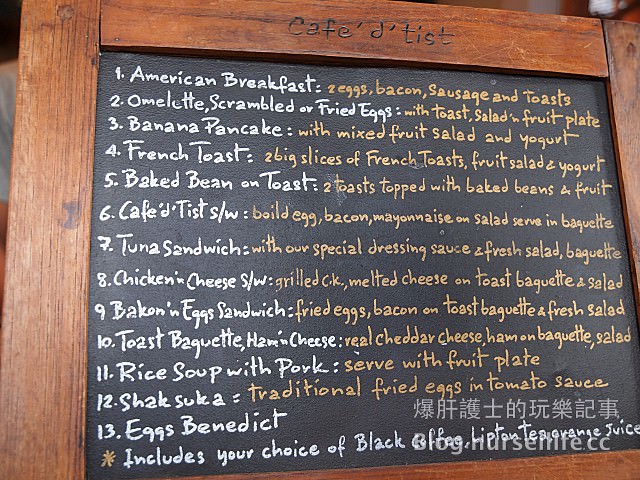 Cafe' d' tist
1. American Breakfast: 2eggs, bacon, Sausage and Toasts
2. Omelette, Scrambled or Fried Eggs: with toast, Salad 'n fruit plate
3. Banana Pancake: with mixed fruit salad and yogurt
4. French Toast: 2big slices of French Toasts, fruit salad & yogurt
5. Baked Bean on Toast: 2toasts topped with baked beans & fruit
6. Cafe'd'Tist s/w: boild egg, bacon, mayonnaise on salad serve in baguette
7. Tuna Sandwich: with our special dressing sauce & fresh salad, baguette
8. Chicken'n Cheese s/w: grilled c.k., melted cheese on toast baguette & salad
9 Bakon'n Eggs Sandwich: fried eggs, bacon on toast baguette & fresh salad
10. Toast Baguette, Ham'n Cheese: real cheddar cheese, ham on baguette, salad
11. Rice Soup with Pork: serve with fruit plate
12. Shaksuka: traditional fried eggs in tomato sauce
13. Eggs Benedict
* Includes your choice of Black Coffee, Lipton Tea, orange Juice
爆肝護士的玩樂記事
Blog.nurseilife.cc